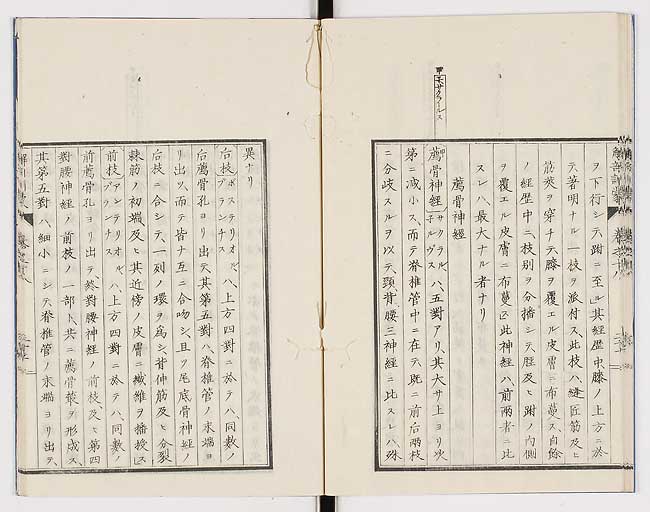 ヲ下行シテ、跗ニ至ル、其經歴中、膝ノ上方ニ於
テ、著明ナル一枝ヲ派付ス、此枝ハ、縫匠筋及ヒ
筋莢ヲ穿チテ、膝ヲ覆エル皮膚ニ布蔓ス、自餘
ノ經歴中ニ、枝別ヲ分播シテ、脛及ヒ跗ノ内側
ヲ覆エル皮膚ニ布蔓ス、此神經ハ、前兩者ニ比
スレハ、最大ナル者ナリ
薦骨神經
薦骨神經 サクラル、子ルヴス ハ、五對アリ、其大サ上ヨリ次
第ニ减小ス、而テ脊椎管中ニ在テ、既ニ前后兩枝
ニ分岐スルヲ以テ、頸、背、腰三神經ニ比スレハ殊
甲
異ナリ
后枝 ポステリオル、ブランチス ハ、上方四對ニ於テハ、同數ノ
后薦骨孔ヨリ出テ、其第五對ハ、脊椎管ノ末端ヨ
リ出ツ、而テ皆ナ互ニ合吻シ、且ツ尾底骨神經ノ
后枝ニ合シテ、一列ノ環ヲ爲シ、背伸筋及ヒ分裂
棘筋ノ初端、及ヒ其近傍ノ皮膚ニ纎維ヲ播授ス
前枝 アンテリオル、ブランチス ハ、上方四對ニ於テハ、同數ノ
前薦骨孔ヨリ出テ、終對腰神經ノ前枝、及ヒ第四
對腰神經ノ前枝ノ一部ト、共ニ薦骨叢ヲ形成ス
其第五對ハ、細小ニシテ、脊椎管ノ末端ヨリ出テ、